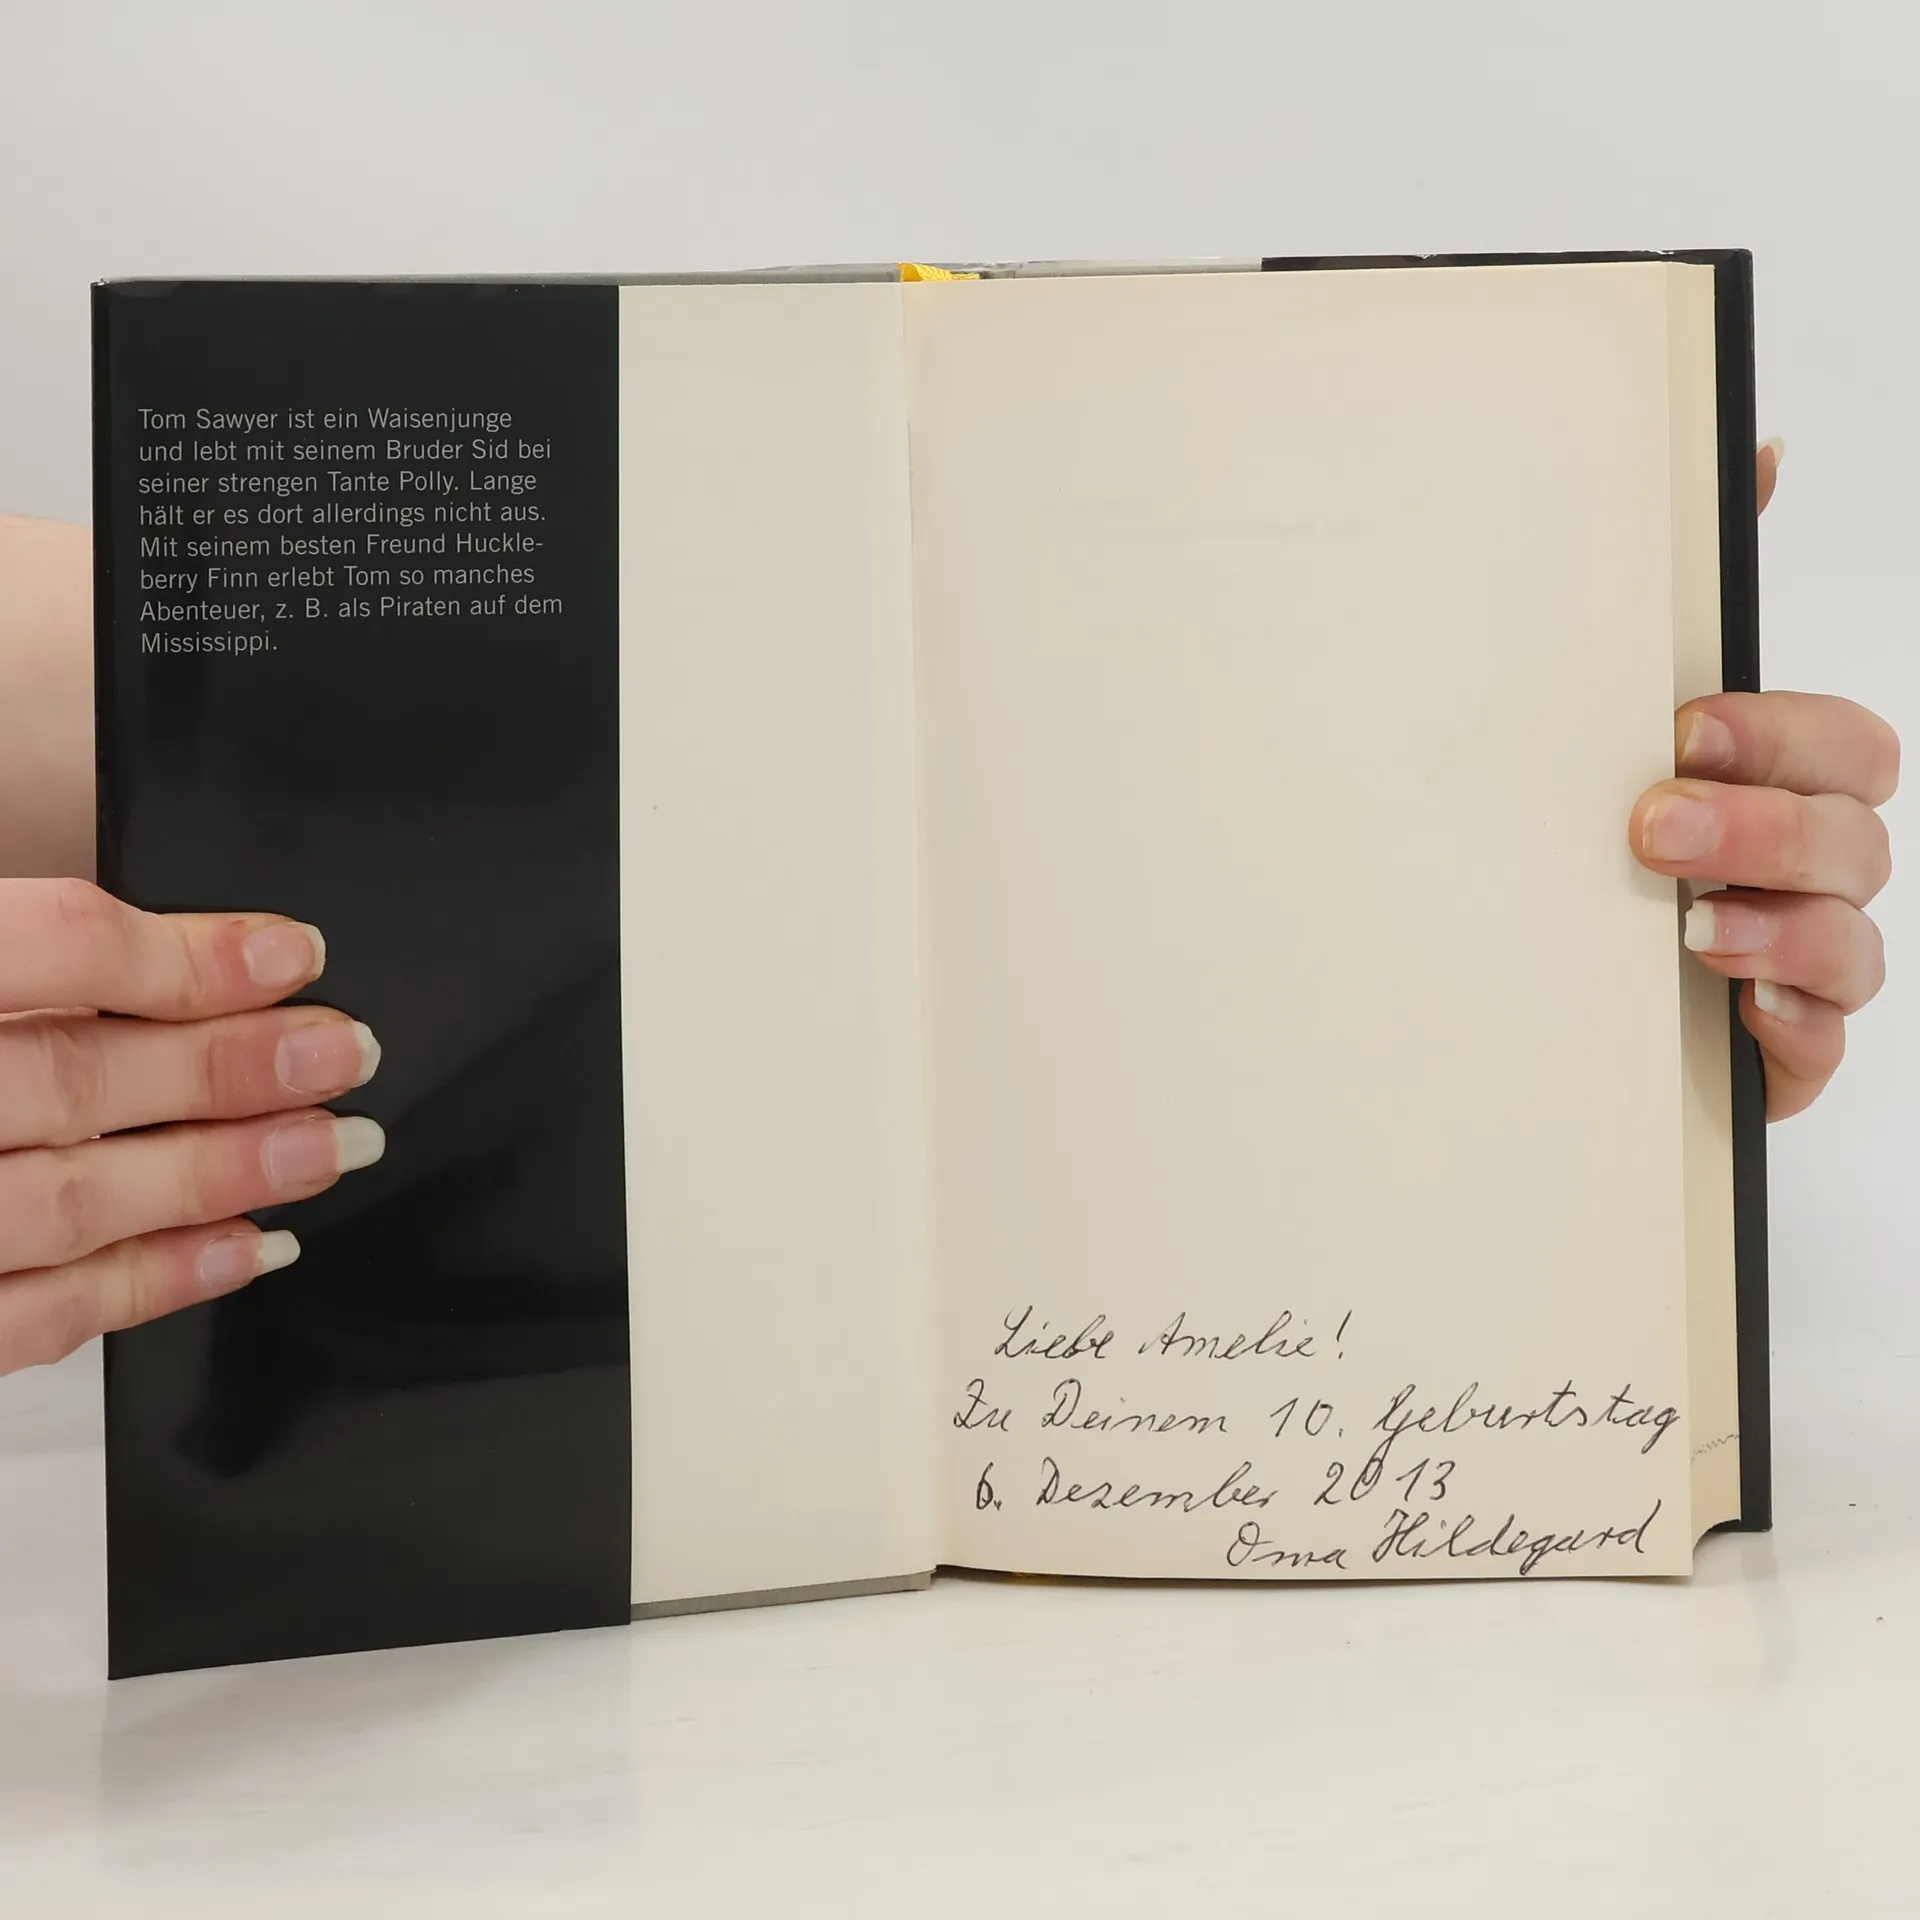 Tom Sawyer ist ein Waisenjunge
und lebt mit seinem Bruder Sid bei
seiner strengen Tante Polly. Lange
hält er es dort allerdings nicht aus.
Mit seinem besten Freund Huckle-
berry Finn erlebt Tom so manches
Abenteuer, z. B. als Piraten auf dem
Mississippi.
Liebe Amelie!
Zu Deinem 10. Geburtstag
6. Dezember 2013
Oma Hildegard